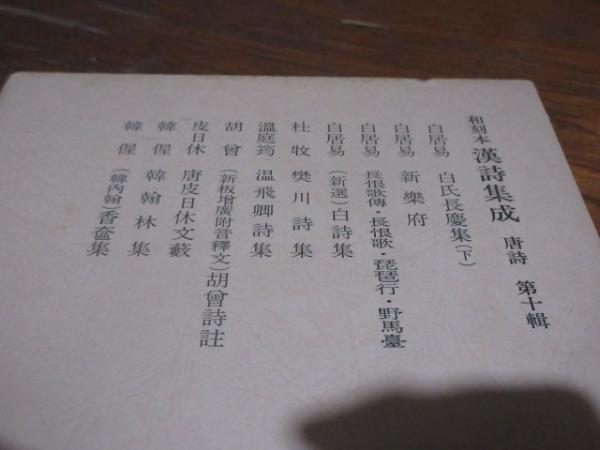 和刻本 漢詩集成 唐詩 第十輯
白居易 白氏長慶集(下)
白居易 新樂府
白居易 長恨歌傳・長恨歌・琵琶行・野馬臺
白居易 (新選)白詩集
杜牧 樊川詩集
溫庭筠 温飛卿詩集
胡曾 (新板增廣附音釋文)胡曾詩註
皮日休 唐皮日休文藪
韓偓 韓翰林集
韓偓 (韓內翰)香奩集